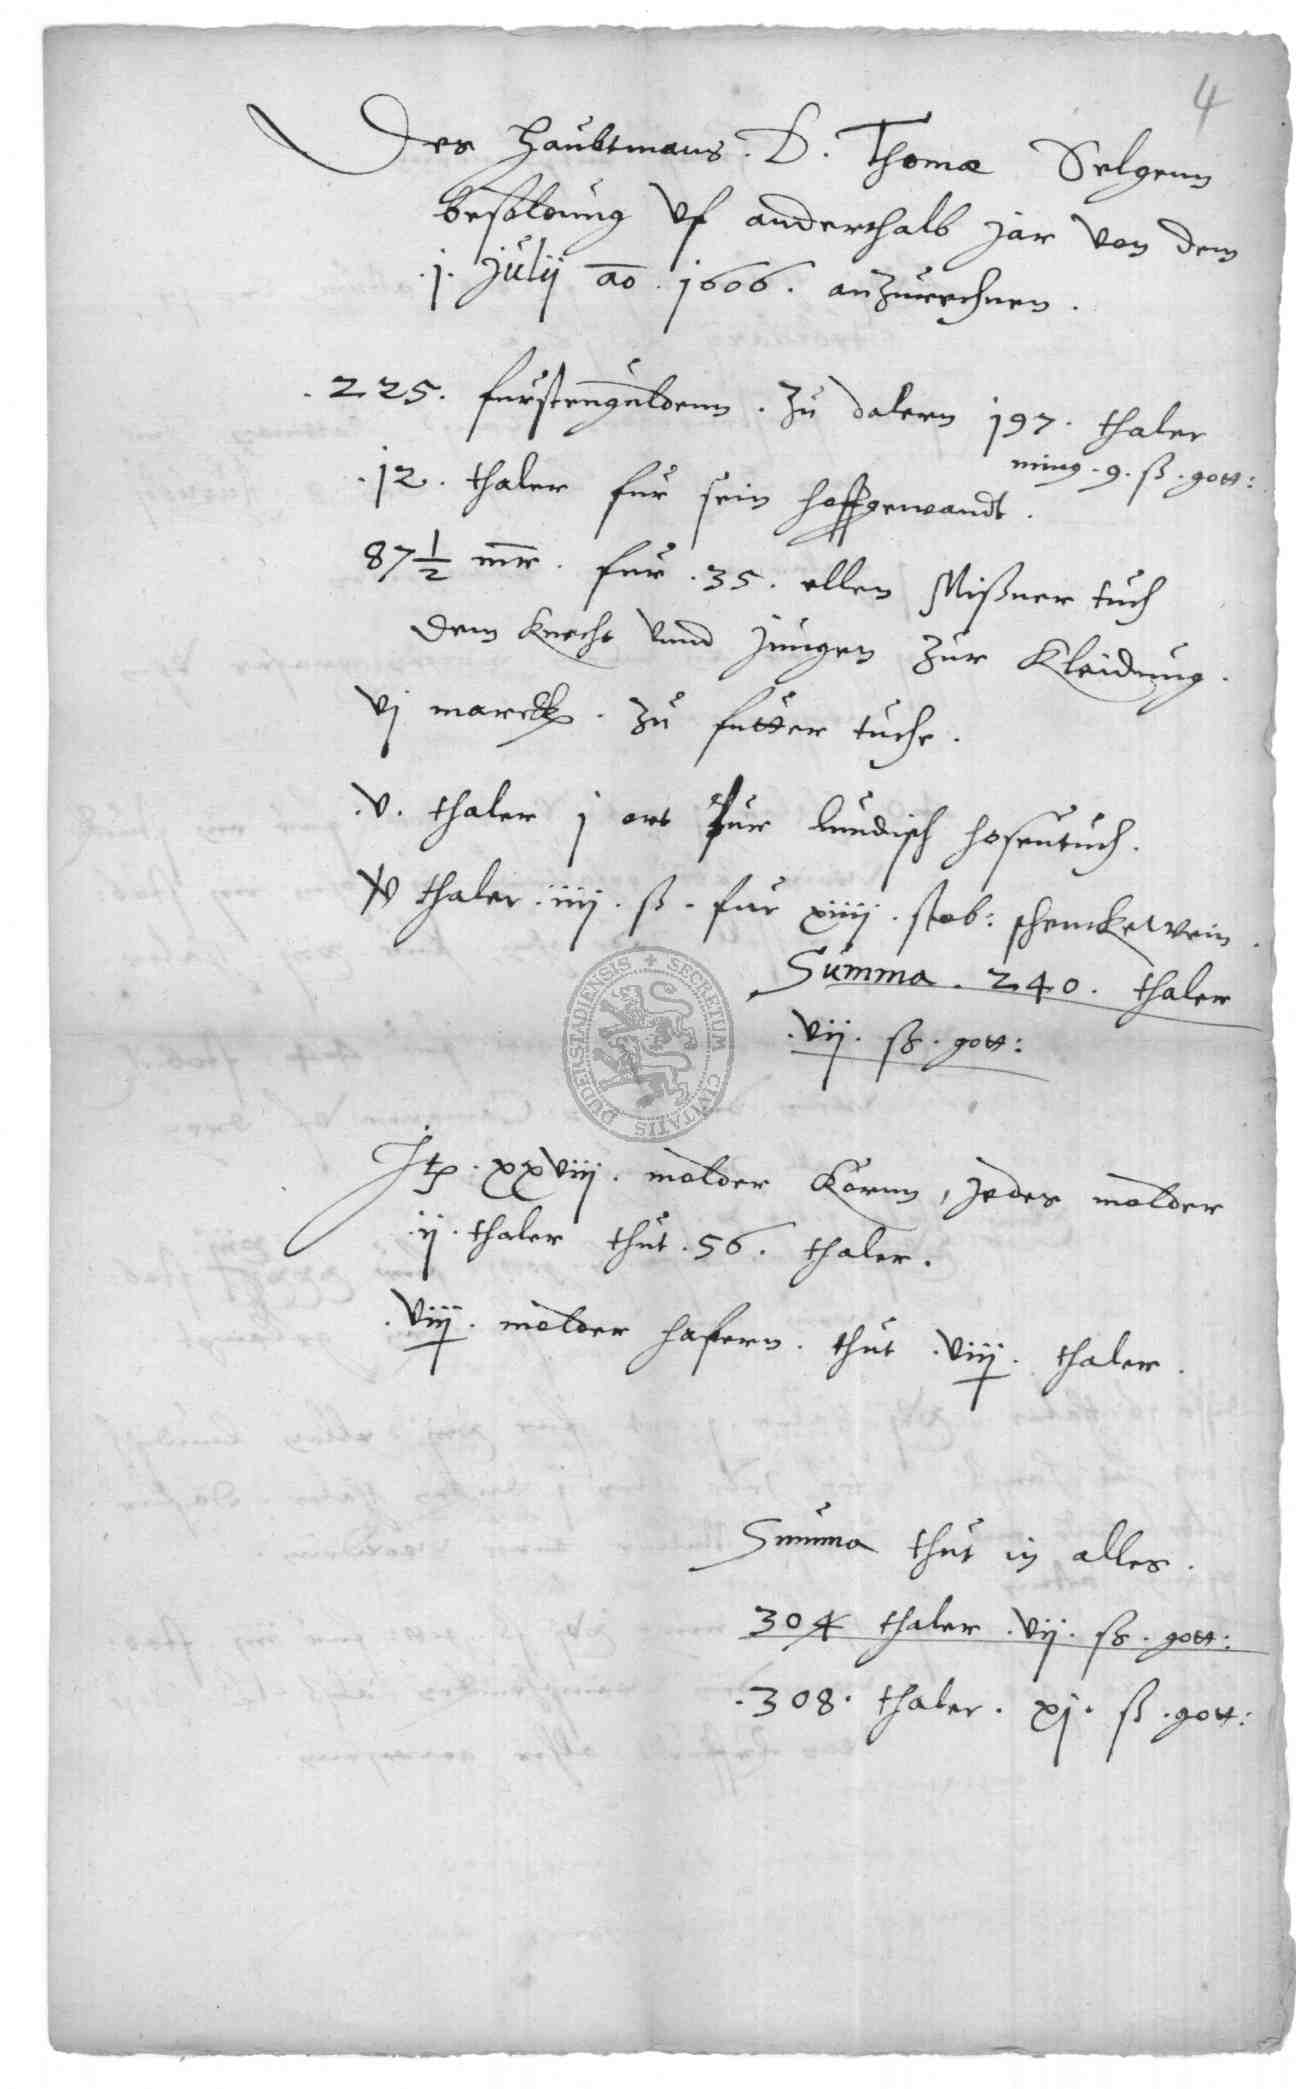 4
Des Haubtmans. D. Thomæ Selgenn
besoldung vf anderthalb jar von dem
.j. Julij ao. 1606. anzurechnen.
.225. furstenguldenn. zu dalern 197. thaler
ming. 9. ß. gott:
.12. thaler fur sein hoffgewandt.
87½ mr. fur .35. ellen Mißner tuch
dem knecht vnnd jungen zur Kleidung.
vj marck. zu futter tuche.
.v. thaler j ort fur lundisch hosentuch.
thaler .iiij. ß. fur xiiij. stob: schenckewein.
Summa. 240. thaler
.vij. ß. gott:
SECRETUM CIVITATIS DUDERSTADIENSIS
Itp. xxviij. molder Kornn, jedes molder
.ij. thaler thut .56. thaler.
.viij. molder hafern. thut .viij. thaler.
Summa thut in alles.
304 thaler .vij. ß. gott:
.308. thaler. xj. ß. gott: